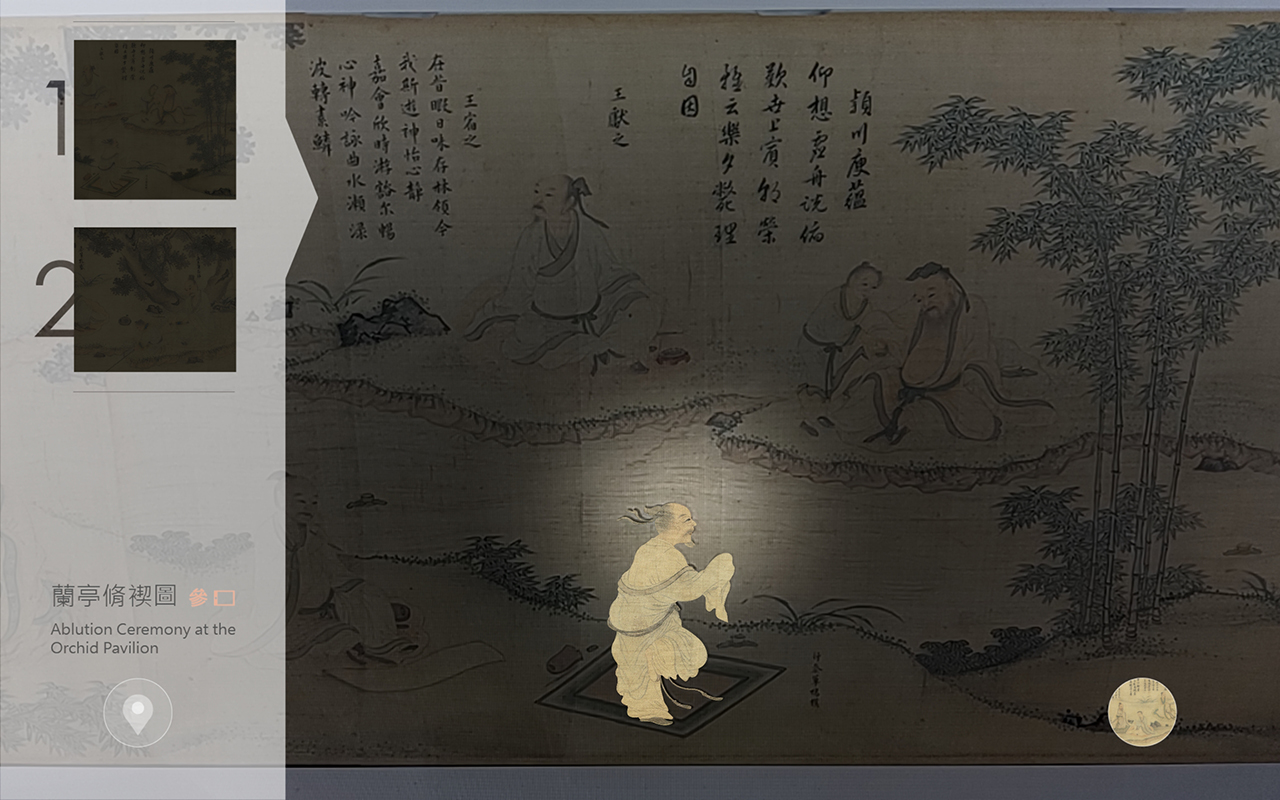 1
2
蘭亭脩禊圖 參
Ablution Ceremony at the
Orchid Pavilion
潁川庾蘊
仰想虛舟說俯
歎世上賓朝榮
雖云樂夕斃理
自因
王獻之
王宿之
在昔暇日味存林嶺今
我斯遊神怡心靜
嘉會欣時游豁尓暢
心神吟詠曲水瀨淥
波轉素鱗